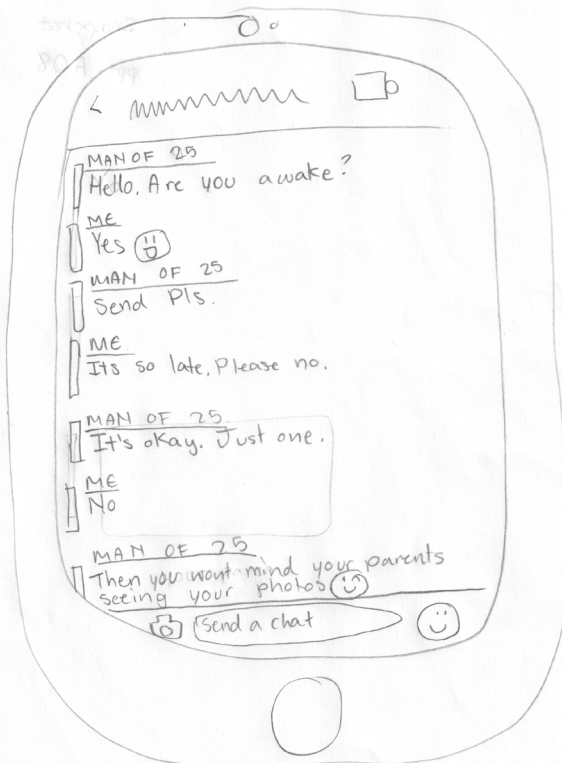 MAN OF 25
Hello. Are you awake?
ME
Yes
MAN OF 25
Send Pls.
ME
Its so late, Please no.
MAN OF 25.
It's okay. Just one.
ME
No
MAN OF 25
Then you wont mind your parents
seeing your photos
Send a chat